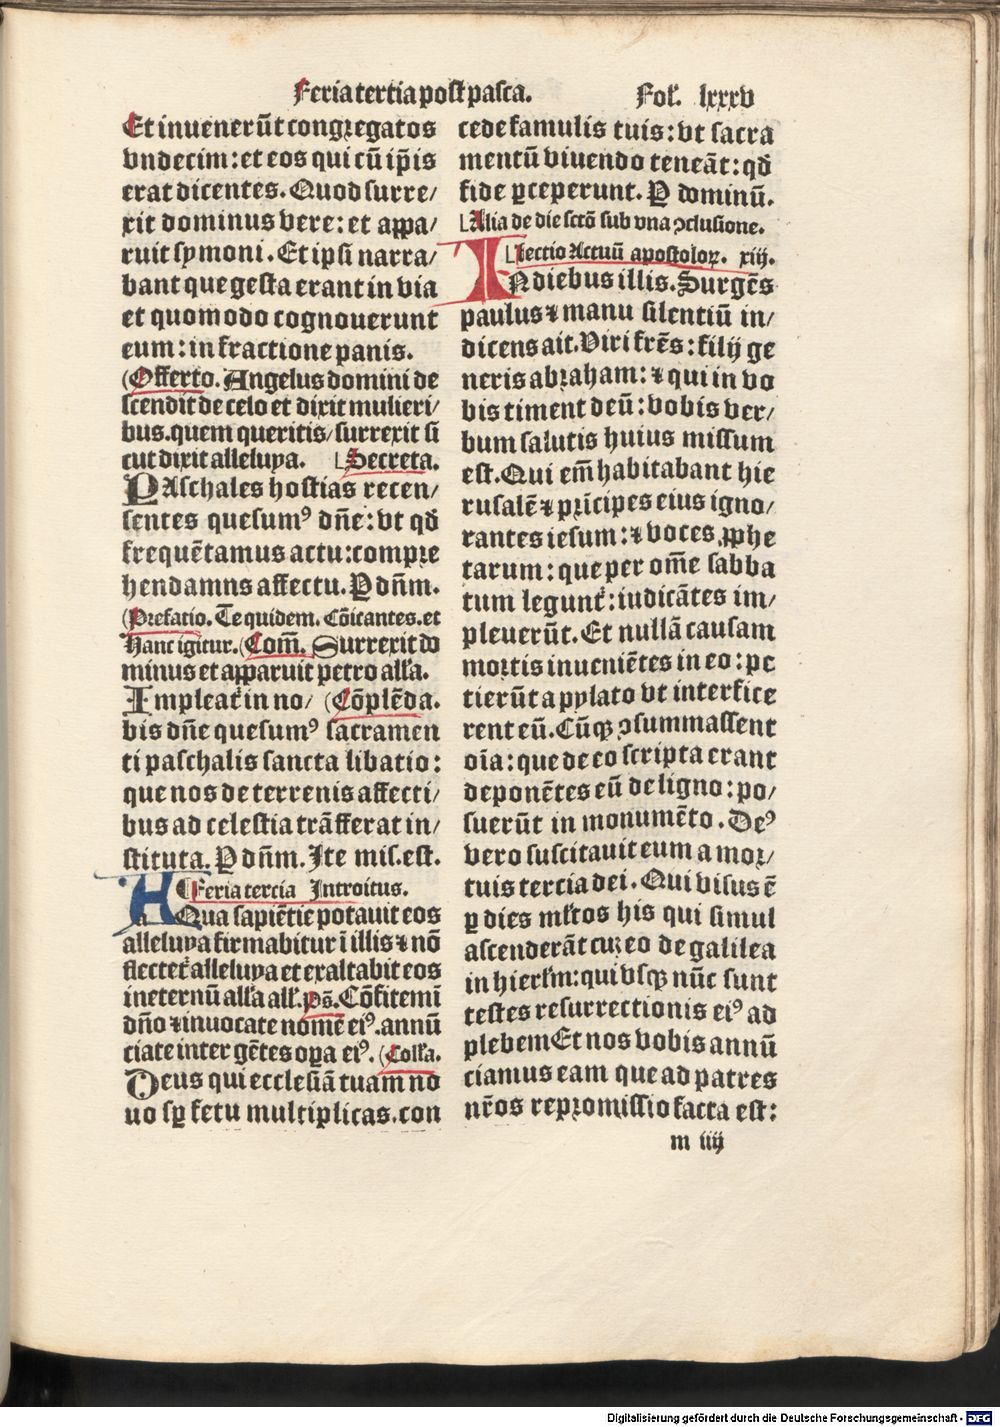 Feria tertia post pasca. Fol. lxxxv
Et inuenerūt congregatos
vndecim: et eos qui cū ip̄is
erat dicentes. Quod surre/
xit dominus vere: et appa/
ruit symoni. Et ipsi narra/
bant que gesta erant in via
et quomodo cognouerunt
eum: in fractione panis.
(Offerto. Angelus domini de
scendit de celo et dixit mulieri/
bus. quem queritis/ surrexit si
cut dixit alleluya. Secreta.
PAschales hostias recen/
sentes quesumꝰ dn̄e: vt qd̄
frequētamus actu: compre
hendamns affectu. P dn̄m.
(Prefatio. Te quidem. Cōicantes. et
Hanc igitur. (Com̄. Surrexit do
minus et apparuit petro alľa.
Impleat᷑ in no/ (Cōplēda.
bis dn̄e quesumꝰ sacramen
ti paschalis sancta libatio:
que nos de terrenis affecti/
bus ad celestia trāfferat in/
stituta. P dn̄m. Ite mis. est.
Feria tercia Introitus.
AQua sapiētie potauit eos
alleluya firmabitur ī illis ⁊ nō
flectet᷑ alleluya et exaltabit eos
in eternū alľa alľ. ps̄. Cōfitemī
dn̄o ⁊ inuocate nomē eiꝰ. annū
ciate inter gētes oꝑa eiꝰ. (Colľa.
Deus qui ecclesiā tuam no
uo sꝑ fetu multiplicas. con
cede famulis tuis: vt sacra
mentū viuendo teneāt: qd̄
fide ꝑceperunt. P dominū.
Alia de die sctō sub vna ꝯclusione.
Lectio Actuū apostoloꝝ. xiij.
IN diebus illis. Surgēs
paulus ⁊ manu silentiū in/
dicens ait. Viri frēs: filij ge
neris abraham: ⁊ qui in vo
bis timent deū: vobis ver/
bum salutis huius missum
est. Qui em̄ habitabant hie
rusalē ⁊ prīcipes eius igno/
rantes iesum: ⁊ voces ꝓphe
tarum: que per om̄e sabba
tum legunt᷑: iudicātes im/
pleuerūt. Et nullā causam
mortis inueniētes in eo: pe
tierūt a pylato vt interfice
rent eū. Cūqꝫ ꝯsummassent
oīa: que de eo scripta erant
deponētes eū de ligno: po/
suerūt in monumēto. Deꝰ
vero suscitauit eum a mor/
tuis tercia dei. Qui visus ē
ꝑ dies ml̄tos his qui simul
ascenderāt cuꝫ eo de galilea
in hierlm̄: qui vsqꝫ nūc sunt
testes resurrectionis eiꝰ ad
plebem Et nos vobis annū
ciamus eam que ad patres
nr̄os repromissio facta est:
m iiij
Digitalisierung gefördert durch die Deutsche Forschungsgemeinschaft - DFG